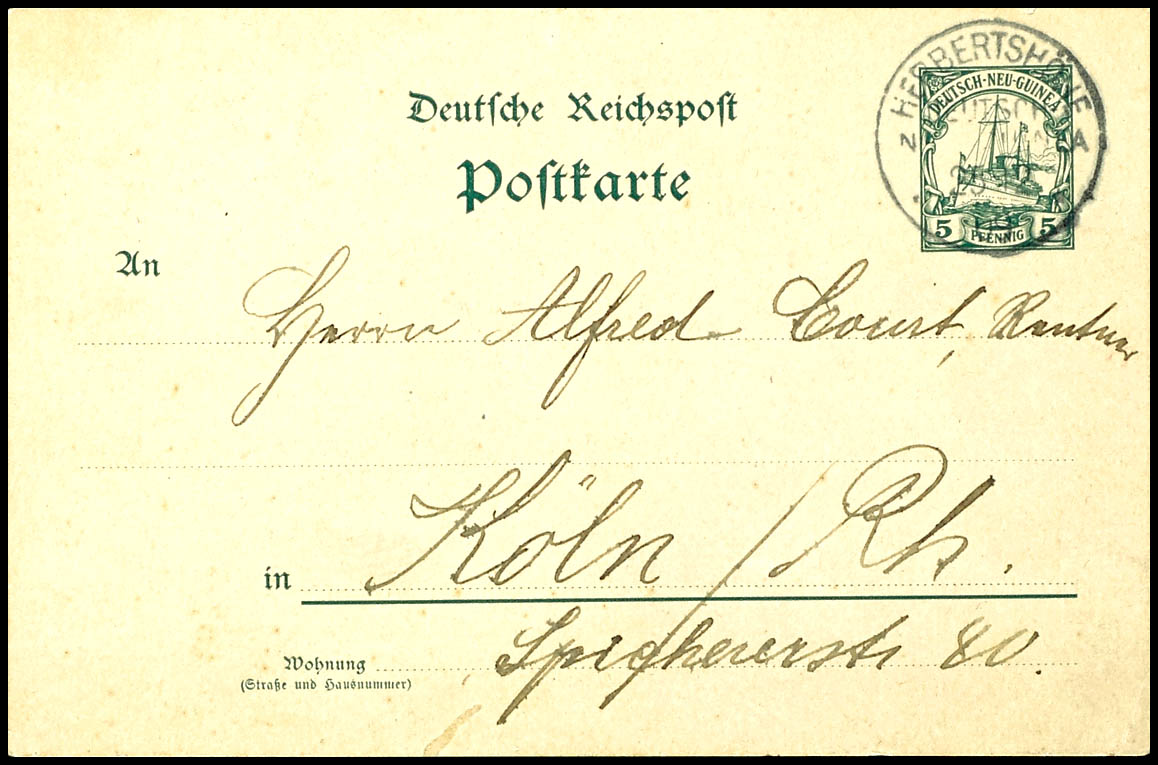 HERBERTSHÖHE
DEUTSCH-NEU-GUINEA
5 PFENNIG 5
Deutsche Reichspost
Postkarte
An
Herrn Alfred Court, Rentner
in Köln / Rh.
Wohnung Spichererstr 80.
(Straße und Hausnummer)